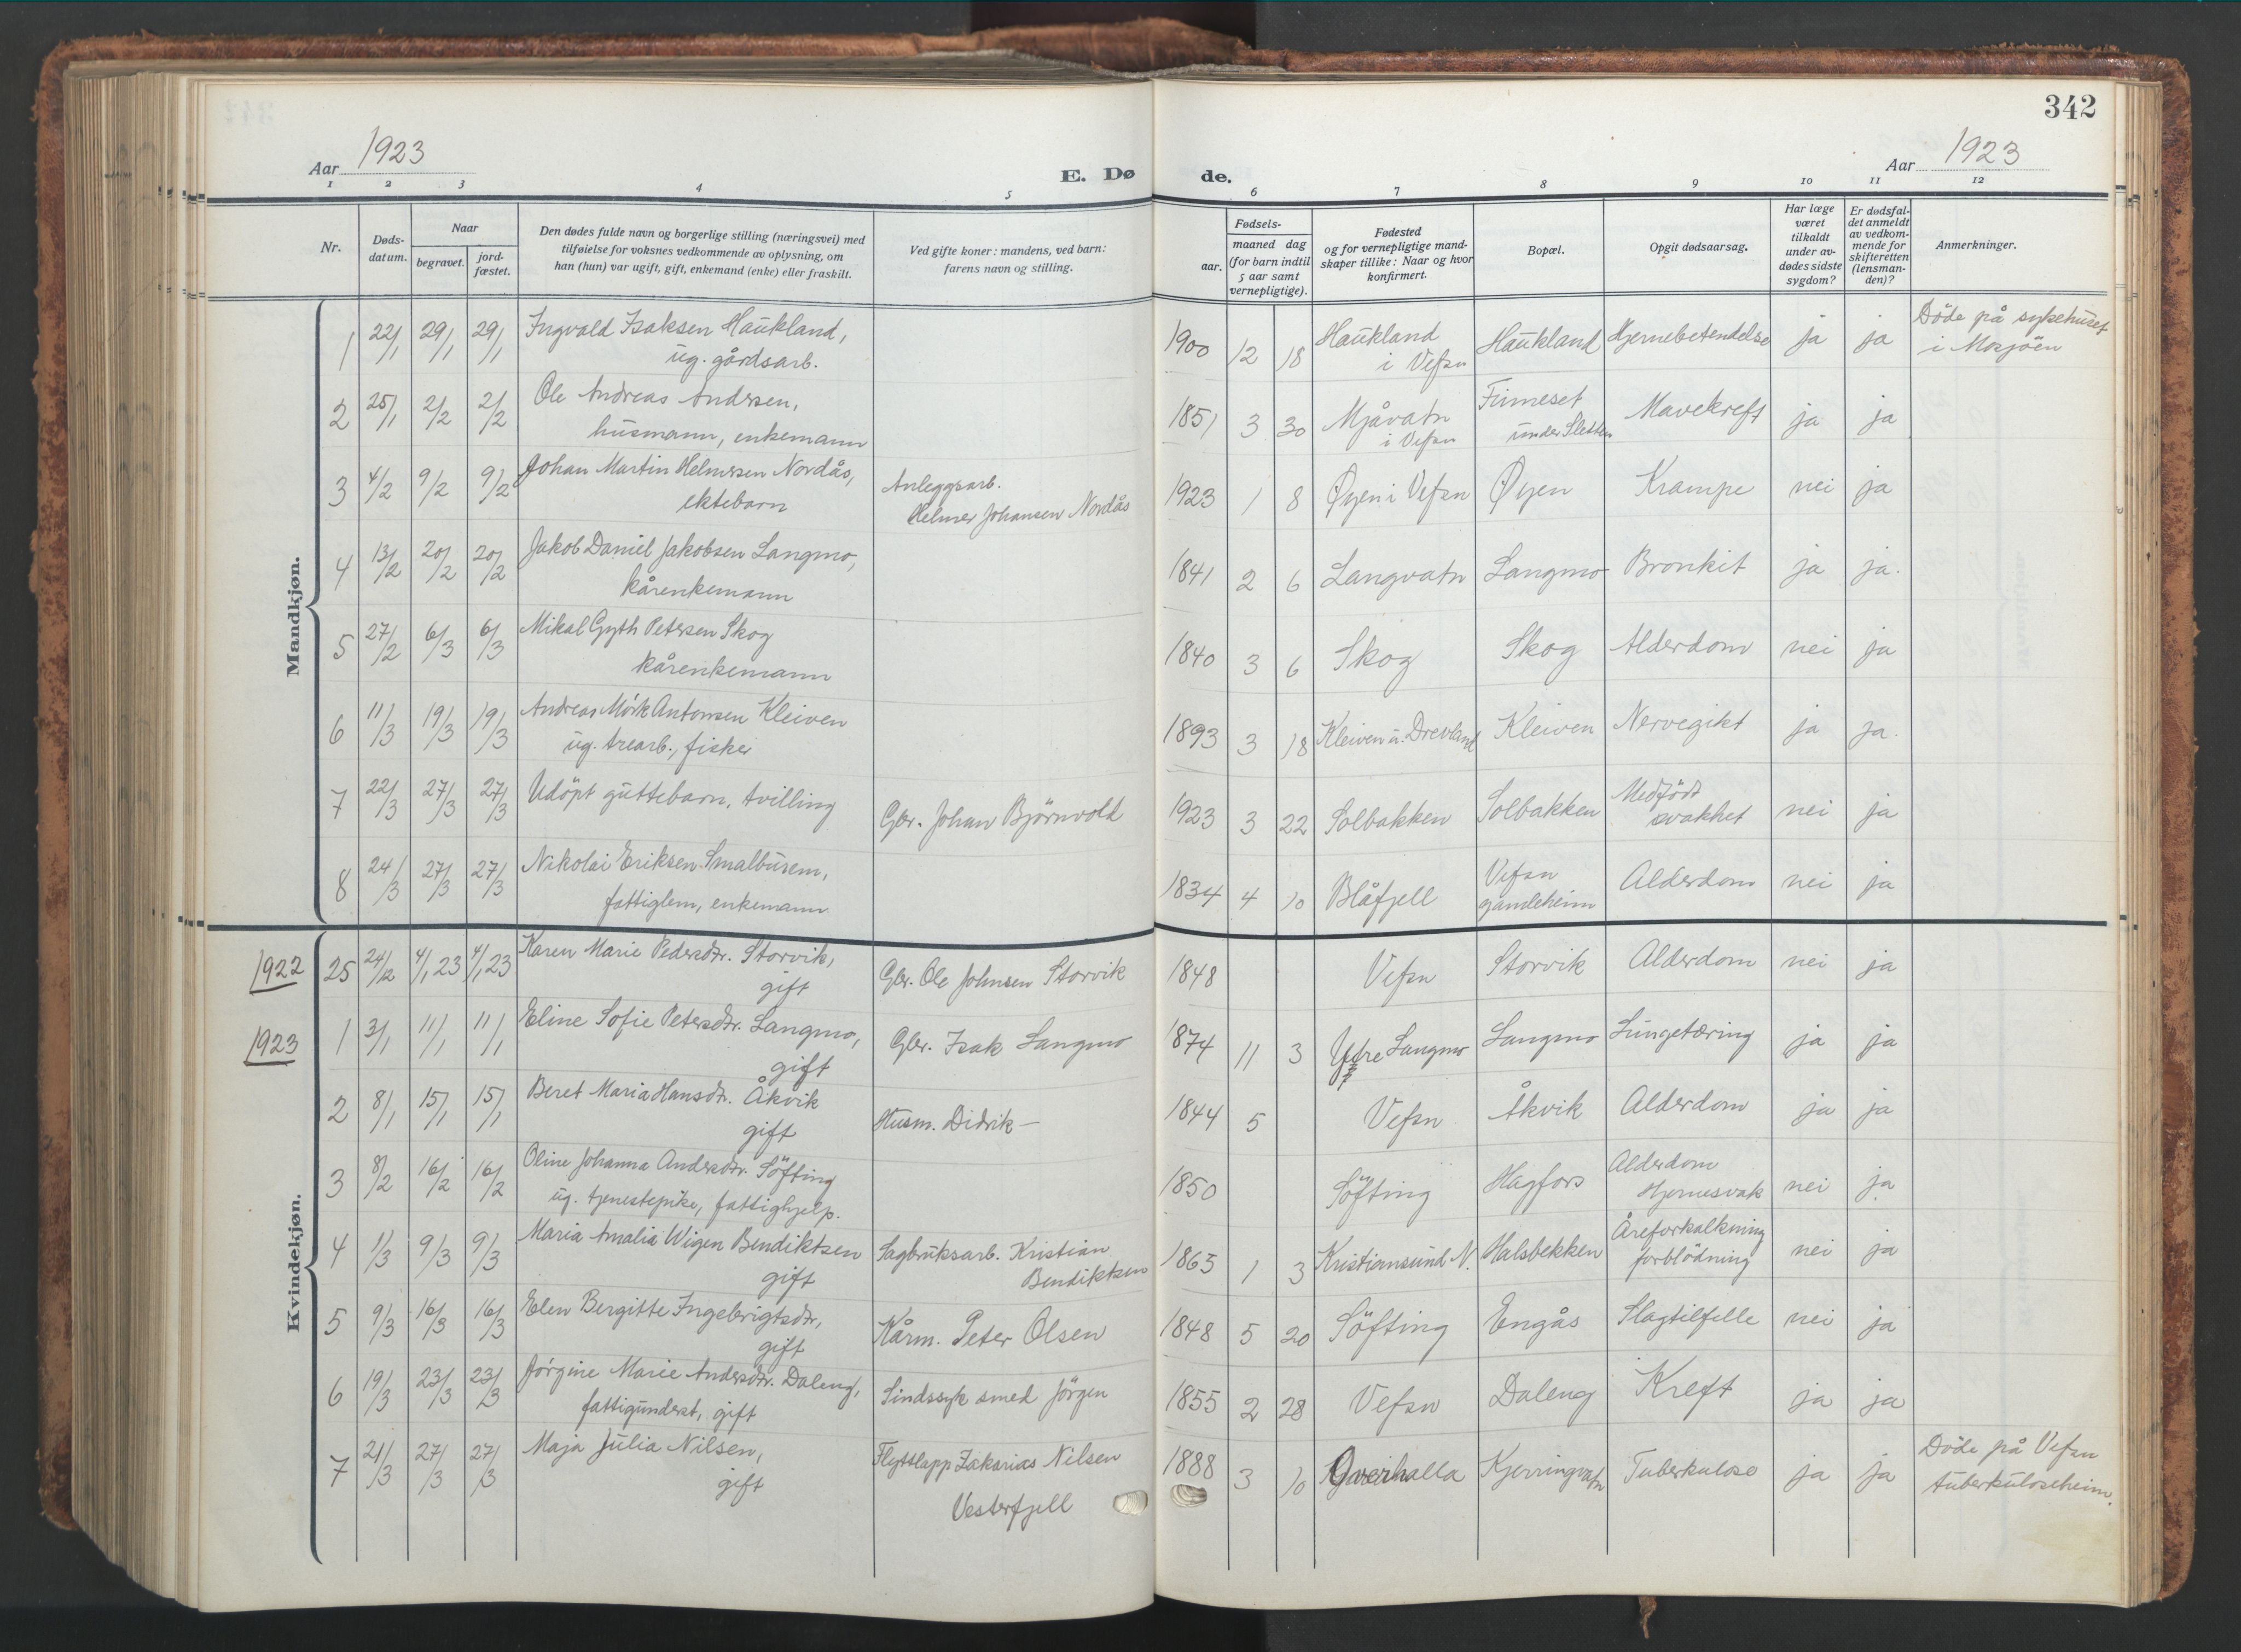 342
Aar 1923
E. Dø
de.
Aar 1923
1 2 3 4 5 6 7 8 9 10 11 12
Nr.
Døds-
datum.
Naar
begravet.
jord-
fæstet.
Den dødes fulde navn og borgerlige stilling (næringsvei) med
tilføielse for voksnes vedkommende av oplysning, om
han (hun) var ugift, gift, enkemand (enke) eller fraskilt.
Ved gifte koner: mandens, ved barn:
farens navn og stilling.
Fødsels-
aar.
maaned dag
(for barn indtil
5 aar samt
vernepligtige).
Fødested
og for vernepligtige mand-
skaper tillike: Naar og hvor
konfirmert.
Bopæl.
Opgit dødsaarsag.
Har læge
været
tilkaldt
under av-
dødes sidste
sygdom?
Er dødsfal-
det anmeldt
av vedkom-
mende for
skifteretten
(lensman-
den)?
Anmerkninger.
Mandkjøn.
1 22/1 29/1 29/1 Ingvald Isaksen Haukland,
ug. gårdsarb.
1900 12 18 Haukland
i Vefsn
Haukland Hjernebetendelse ja ja
Döde på sykehuset
i Mosjöen
2 25/1 2/2 2/2 Ole Andreas Andersen,
husmann, enkemann
1851 3 30 Mjåvatn
i Vefsn
Finneset
under Sletten
Mavekreft ja ja
3 4/2 9/2 9/2 Johan Martin Helmersen Nordås,
ektebarn
Anleggsarb.
Helmer Johansen Nordås
1923 1 8 Øyen i Vefsn Øyen Krampe nei ja
4 13/2 20/2 20/2 Jakob Daniel Jakobsen Langmo,
kårenkemann
1841 2 6 Langvatn Langmo Bronkit ja ja.
5 27/2 6/3 6/3 Mikal Gyth Petersen Skog
kårenkemann
1840 3 6 Skog Skog Alderdom nei ja
6 11/3 19/3 19/3 Andreas Mörk Antonsen Kleiven
ug. trearb., fisker
1893 3 18 Kleiven u. Drevland Kleiven Nervegikt ja ja.
7 22/3 27/3 27/3 Udöpt guttebarn, tvilling
Gbr. Johan Björnvold
1923 3 22 Solbakken Solbakken Medfödt
svakhet
nei ja
8 24/3 27/3 27/3 Nikolai Eriksen Smalbusem,
fattiglem, enkemann
1834 4 10 Blåfjell Vefsn
gamleheim
Alderdom nei ja
Kvindekjøn.
1922 25 24/12 4/1 23 4/1 23 Karen Marie Pedersdtr. Storvik,
gift
Gbr. Ole Johnsen Storvik
1848 Vefsn Storvik Alderdom nei ja
1923 1 3/1 11/1 11/1 Eline Sofie Petersdtr. Langmo,
gift
Gbr. Isak Langmo
1874 11 3 Ytre Langmo Langmo Lungetæring ja ja
2 8/1 15/1 15/1 Beret Maria Hansdtr. Åkvik
gift
Husm. Didrik —
1844 5 Vefsn Åkvik Alderdom ja ja
3 8/2 16/2 16/2 Oline Johanna Andersdtr. Söfting
ug. tjenestepike, fattighjelp.
1850 Söfting Hagfors Alderdom
Hjernesvak
nei ja
4 1/3 9/3 9/3 Maria Amalia Wigen Bendiktsen
gift
Sagbruksarb. Kristian
Bendiktsen
1865 1 3 Kristiansund N. Halsbekken Åreforkalkning
forblödning
nei ja
5 9/3 16/3 16/3 Elen Bergitte Ingebrigtsdtr,
gift
Kårm. Peter Olsen
1848 5 20 Söfting Engås Slagtilfelle nei ja
6 19/3 23/3 23/3 Jörgine Marie Andersdtr. Daleng,
fattigunderst, gift
Sindssyk smed Jörgen
1855 2 28 Vefsn Daleng Kreft ja ja
7 21/3 27/3 27/3 Maja Julia Nilsen,
gift
Flyttlapp Zakarias Nilsen
Vesterfjell
1888 3 10 Overhalla Kjerringvatn Tuberkulose ja ja
Döde på Vefsn
tuberkuloseheim.